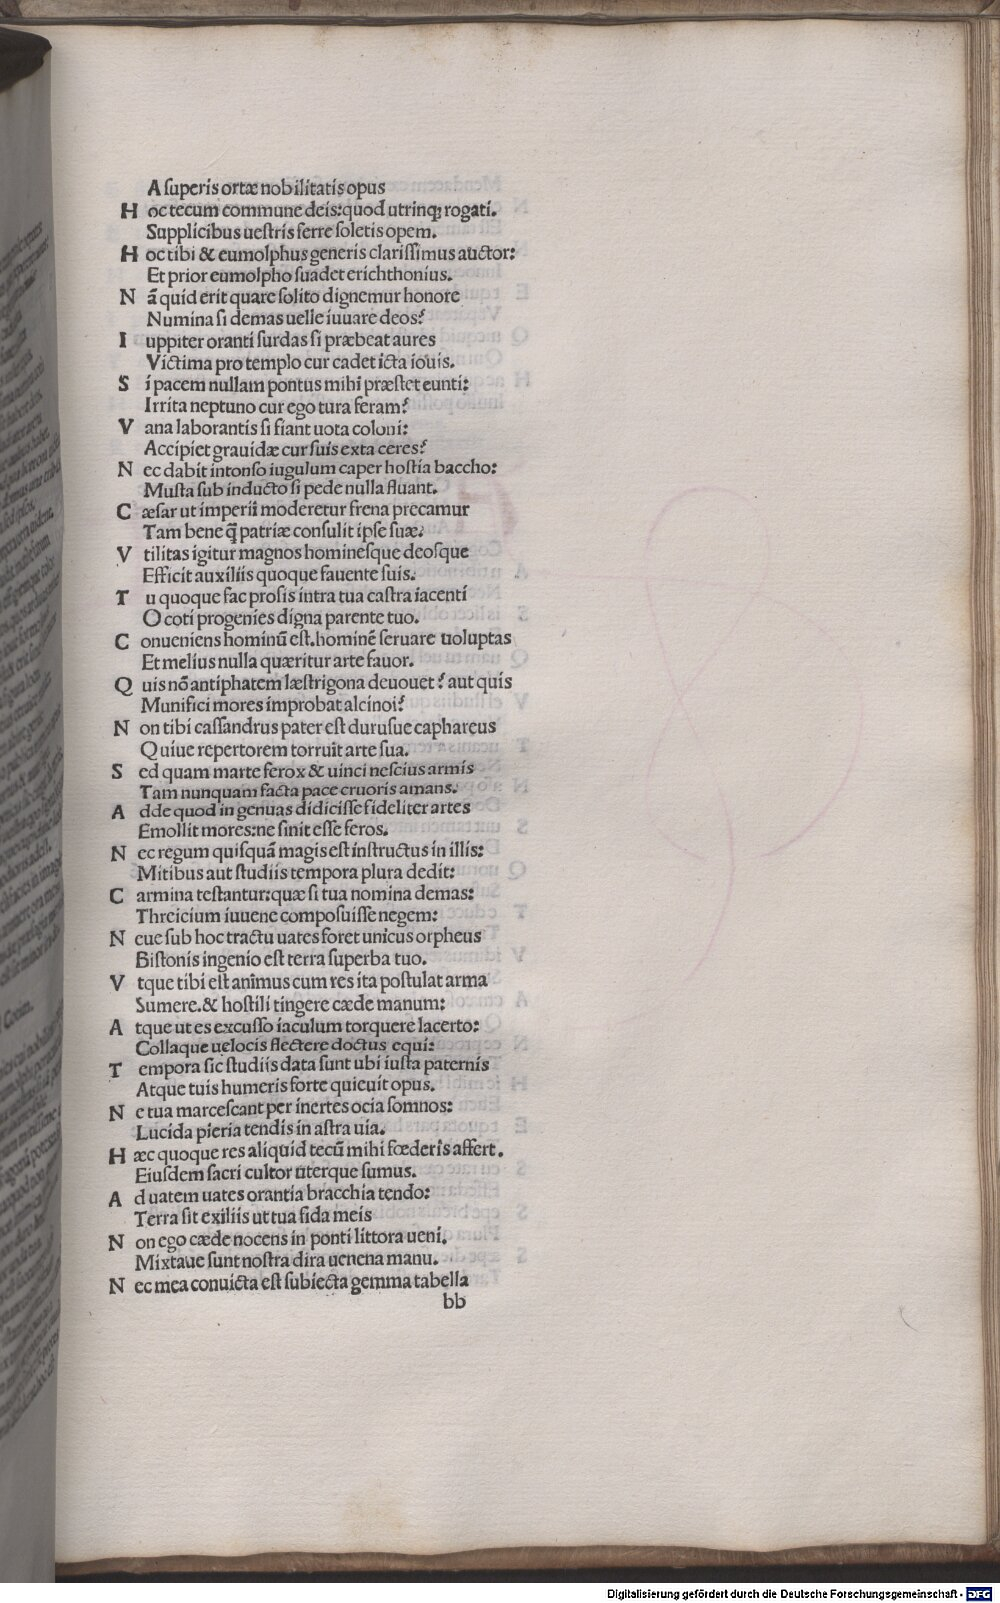 A ſuperis ortæ nobilitatis opus
H oc tecum commune deis: quod utrinq; rogati.
Supplicibus ueſtris ferre ſoletis opem.
H oc tibi & eumolphus generis clariſſimus auctor:
Et prior eumolpho ſuadet erichthonius.
N ā quid erit quare ſolito dignemur honore
Numina ſi demas uelle iuuare deos?
I uppiter oranti ſurdas ſi præbeat aures
Victima pro templo cur cadet icta iouis.
S i pacem nullam pontus mihi præſtet eunti:
Irrita neptuno cur ego tura feram?
V ana laborantis ſi fiant uota coloni:
Accipiet grauidæ cur ſuis exta ceres?
N ec dabit intonſo iugulum caper hoſtia baccho:
Muſta ſub inducto ſi pede nulla fluant.
C æſar ut imperii moderetur frena precamur
Tam bene q̄ patriæ conſulit ipſe ſuæ?
V tilitas igitur magnos hominesque deoſque
Efficit auxiliis quoque fauente ſuis.
T u quoque fac proſis intra tua caſtra iacenti
O coti progenies digna parente tuo.
C onueniens hominū eſt. hominē ſeruare uoluptas
Et melius nulla quæritur arte fauor.
Q uis nō antiphatem læſtrigona deuouet? aut quis
Munifici mores improbat alcinoi?
N on tibi caſſandrus pater eſt durusue caphareus
Quiue repertorem torruit arte ſua.
S ed quam marte ferox & uinci neſcius armis
Tam nunquam facta pace cruoris amans.
A dde quod in genuas didiciſſe fideliter artes
Emollit mores: ne ſinit eſſe feros.
N ec regum quiſquā magis eſt inſtructus in illis:
Mitibus aut ſtudiis tempora plura dedit:
C armina teſtantur: quæ ſi tua nomina demas:
Threicium iuuene compoſuiſſe negem:
N eue ſub hoc tractu uates foret unicus orpheus
Biſtonis ingenio eſt terra ſuperba tuo.
V tque tibi eſt animus cum res ita poſtulat arma
Sumere. & hoſtili tingere cæde manum:
A tque ut es excuſſo iaculum torquere lacerto:
Collaque uelocis flectere doctus equi:
T empora ſic ſtudiis data ſunt ubi iuſta paternis
Atque tuis humeris forte quieuit opus.
N e tua marceſcant per inertes ocia ſomnos:
Lucida pieria tendis in aſtra uia.
H æc quoque res aliquid tecū mihi fœderis affert.
Eiuſdem ſacri cultor uterque ſumus.
A d uatem uates orantia bracchia tendo:
Terra ſit exiliis ut tua fida meis
N on ego cæde nocens in ponti littora ueni.
Mixtaue ſunt noſtra dira uenena manu.
N ec mea conuicta eſt ſubiecta gemma tabella
bb
Digitalisierung gefördert durch die Deutsche Forschungsgemeinschaft - DFG